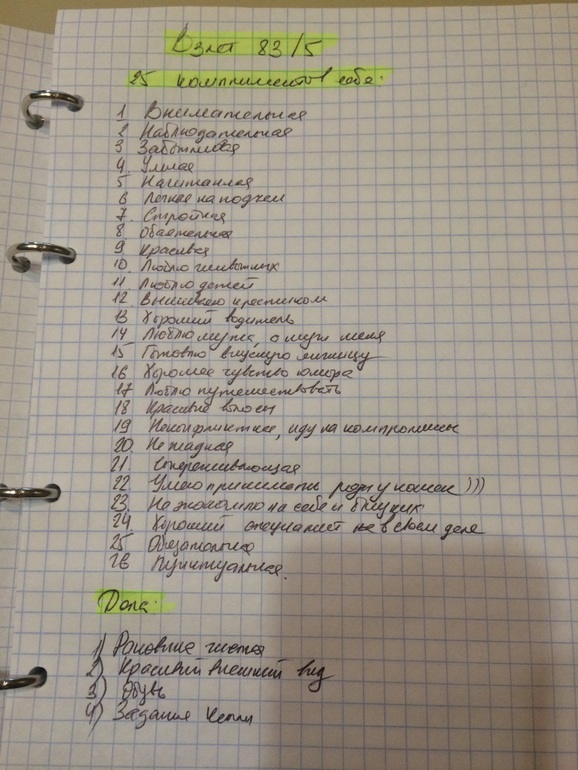 Взлет 83/5
25 комплиментов себе:
1 Внимательная
2 Наблюдательная
3 Заботливая
4. Умная
5 Начитанная
6 Легкая на подъем
7. Стройная
8. Обаятельная
9 Красивая
10. Люблю животных
11. Люблю детей
12 Вышиваю крестиком
13 Хороший водитель
14 Люблю мужа, а муж меня
15 Готовлю вкусную яичницу
16 Хорошее чувство юмора
17 Люблю путешествовать
18 Красивые волосы
19 Неконфликтная, иду на компромиссы
20. Не жадная
21. Сопереживающая
22 Умею принимать роды у кошек )))
23. Не экономлю на себе и близких
24 Хороший специалист в своем деле
25 Обязательная
26 Пунктуальная.
Дела:
1) чистка
2) Красивый внешний вид
3) Обувь
4) Задание